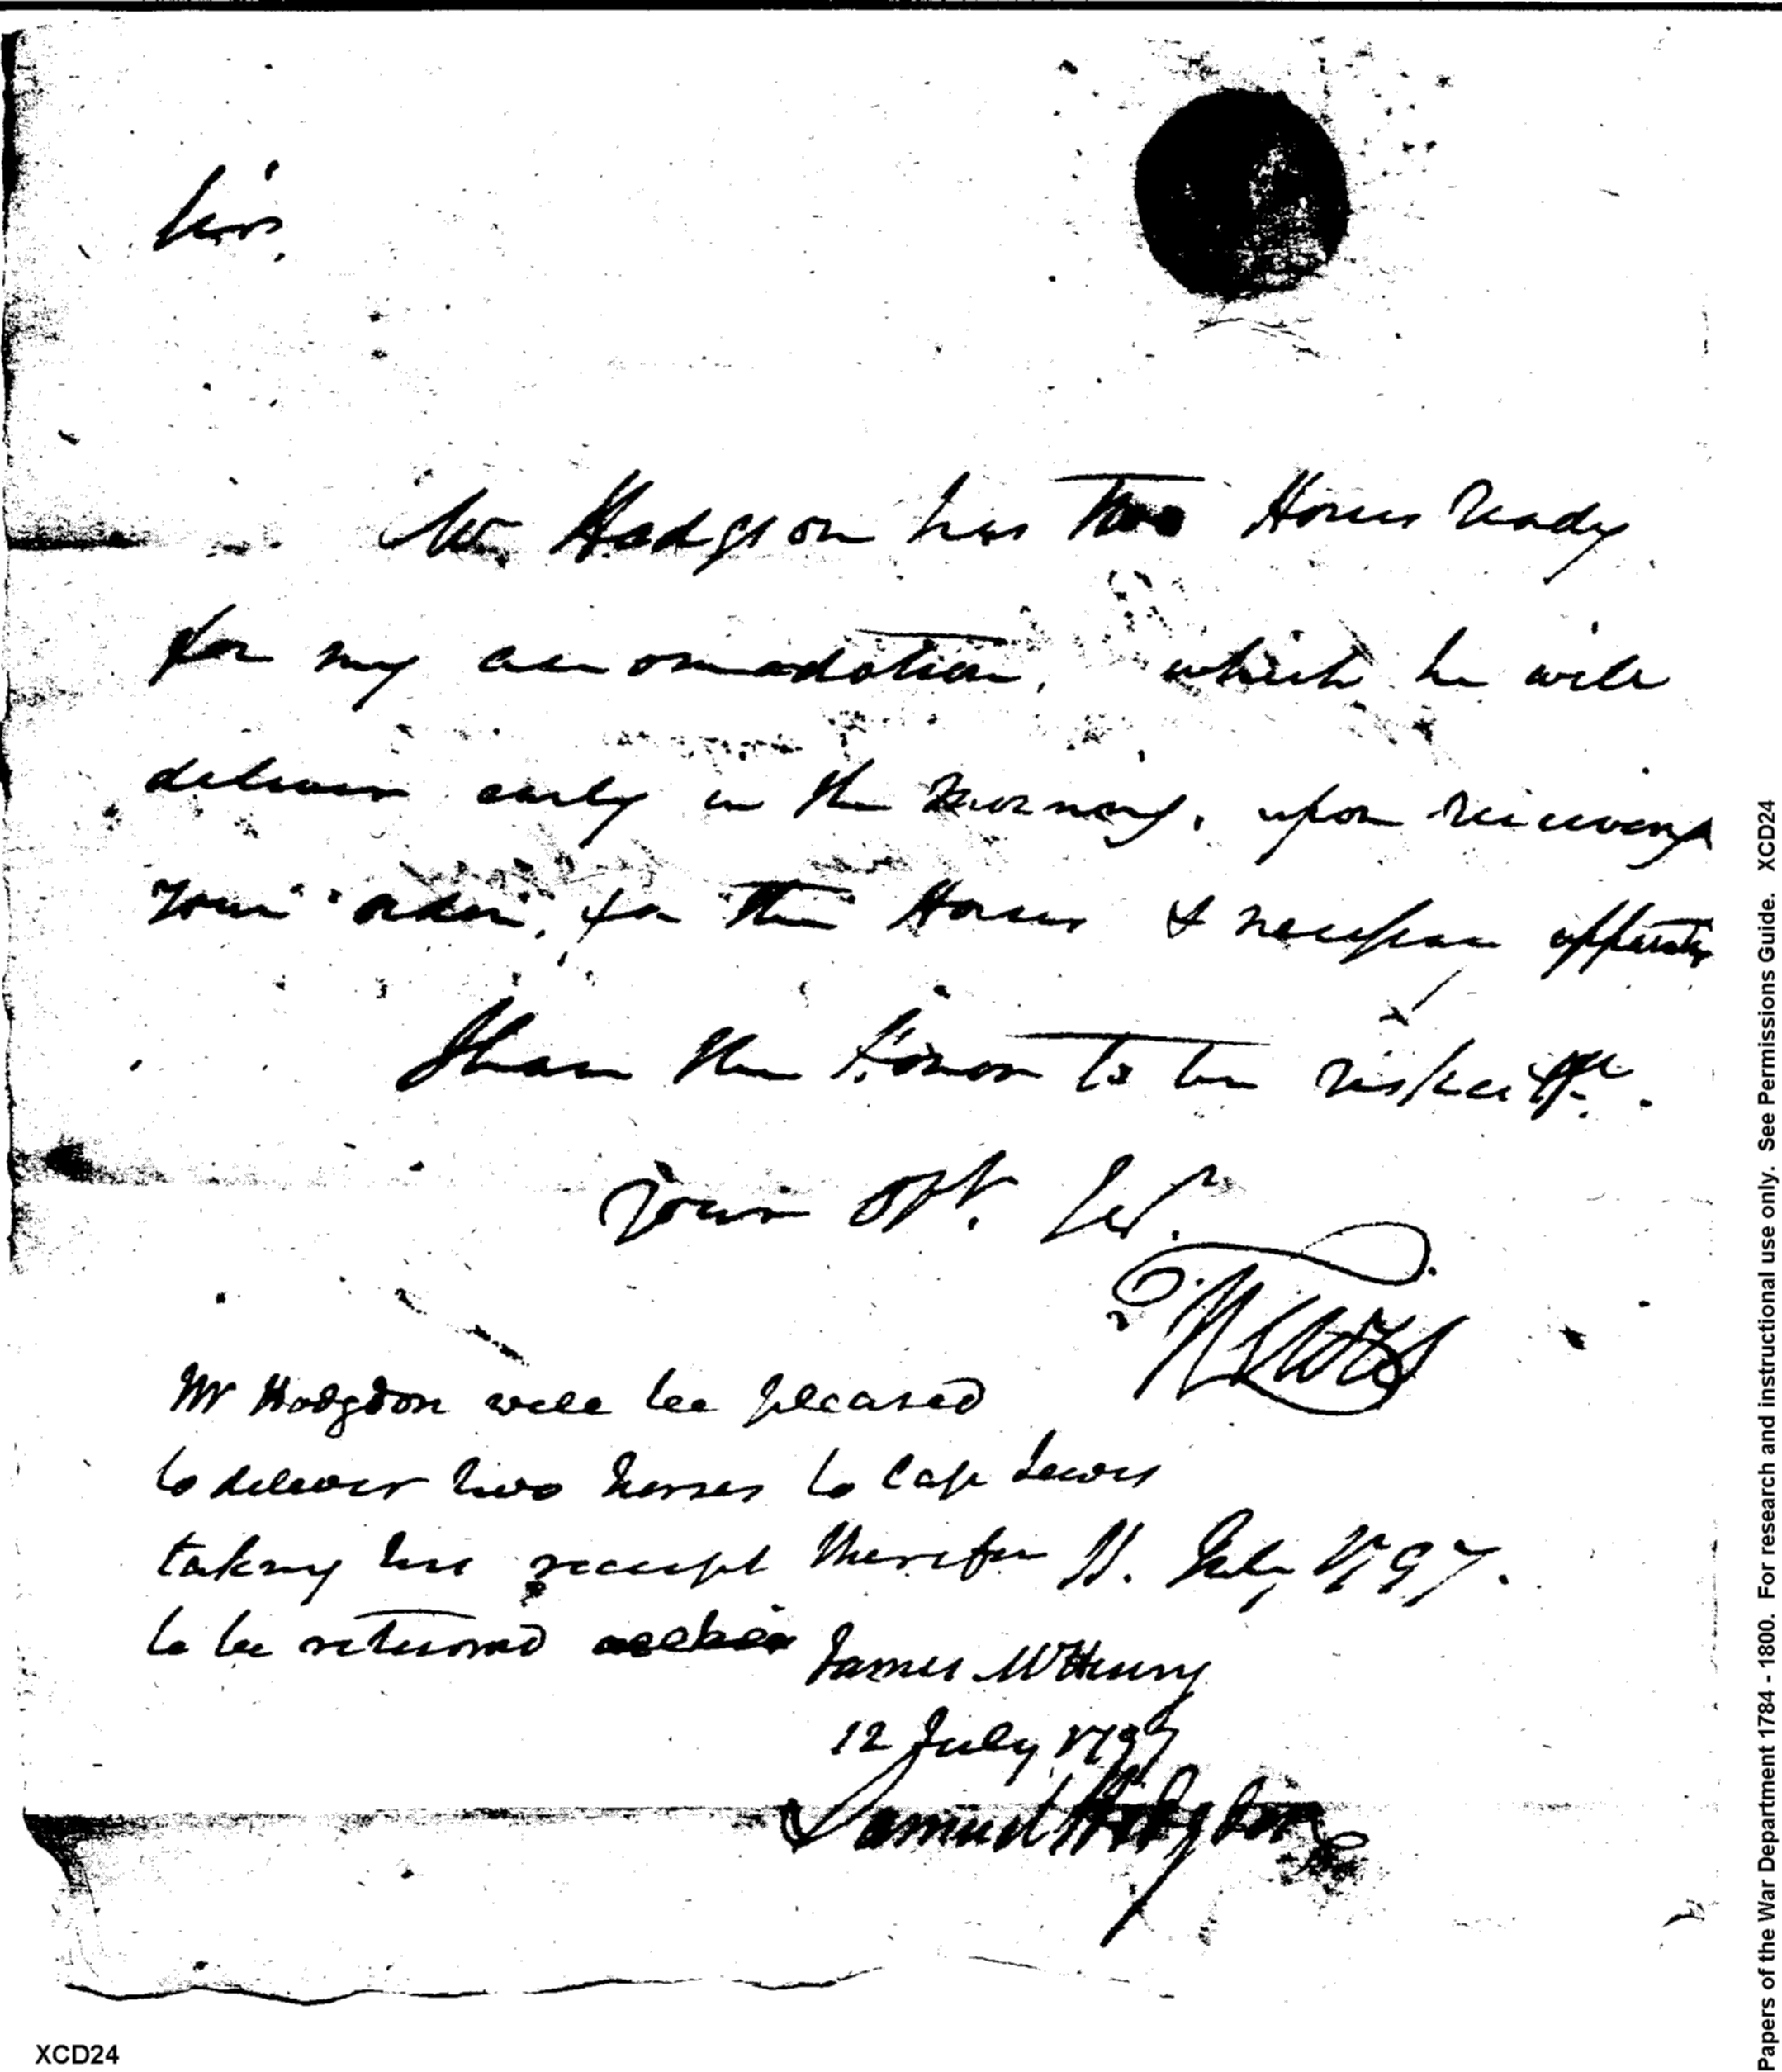 Sir,
Mr. Hodgson has Two Horses Ready
for my accomodation, which he will
deliver early in the morning, upon receiving
Your order, for the Horses & necessary
I have the Honor to be respectfy.
Your Obt. Sert.
Mr Hodgdon will be pleased
to deliver two horses to Cap Lewis
taking his receipt therefor 11. July 1797.
to be returned
James McHenry
12 July 1797
Samuel Hodgdon
XCD24
Papers of the War Department 1784 - 1800. For research and instructional use only. See Permissions Guide. XCD24